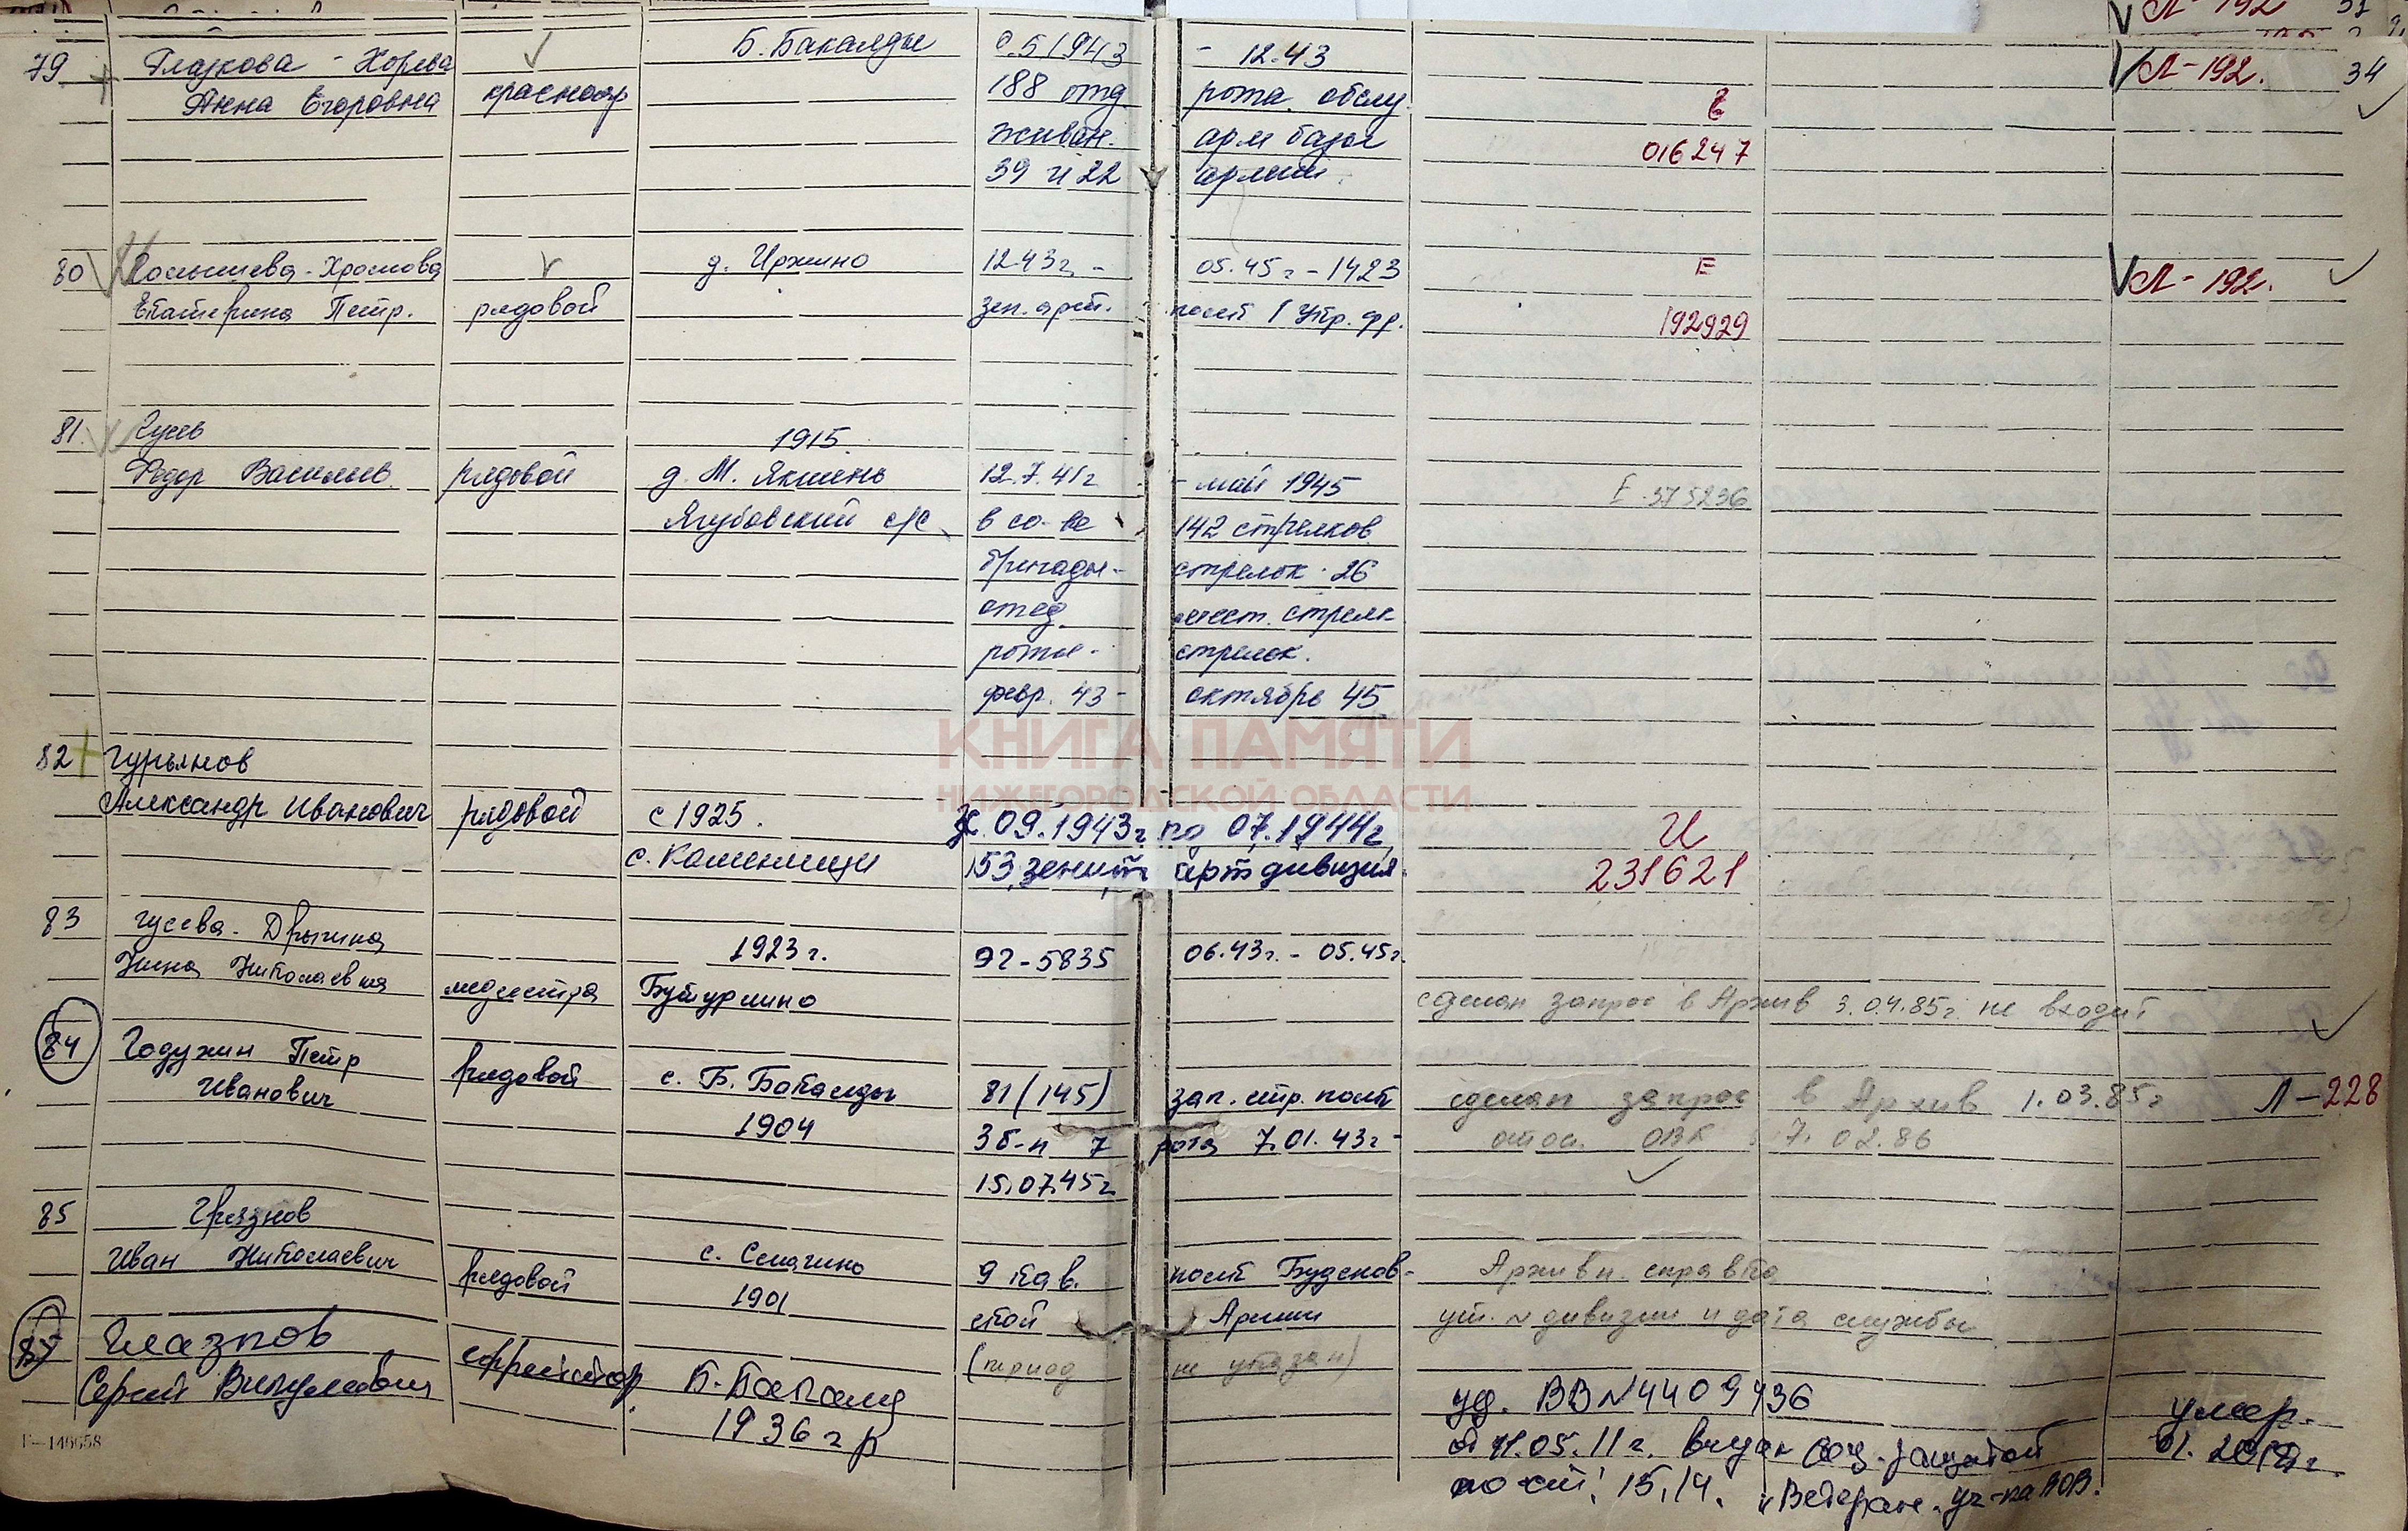 Л-192 31
79 Глазкова - Хорева Б. Бакалды с.5 1943 - 12.43 Л-192. 34
Анна Егоровна красноар 188 отд рота обслу
живан. арм базы 016247
39 и 22 армии
80 Хромова д. Иржино 12.43г. - 05.45г - 1423 Е Л-192.
Екатерина Петр. рядовой зен. арт. полк 1 Укр. фр. 192929
81. Гусев 1915.
Федор Васильев. рядовой д. М. Якшень 12.7.41г - май 1945 Е 375236
Ягубовский с/с в со-ве 142 стрелков
бригады - стрелок - 26
отед. стрелк
роты - стрелок.
февр. 43 - октябрь 45
КНИГА ПАМЯТИ
НИЖЕГОРОДСКОЙ ОБЛАСТИ
82 Гурьянов
Александр Иванович рядовой с 1925. с. 09.1943г по 07.1944г И
с. Каменищи 53 зенитн артдивизия. 231621
83 Гусева - Дрыгина 1923г. ЭГ-5835 06.43г. - 05.45г.
Нина Николаевна медсестра Бутурлино сделан запрос в Архив 3.04.85г. не входит
84 Годухин Петр рядовой с. Б. Бакалды 81 (145) зап. стр. полк сделан запрос в Архив 1.03.85г Л-228
Иванович 1904 3б-н 7 рота 7.01.43г - ОВК 7.02.86
15.07.45г
85 Грязнов
Иван Николаевич рядовой с. Смагино 9 кав. полк Буденов- Архивн. справка
1901 ской Армии ут. N дивизии и дата службы
Глазков ефрейтор (период не указан)
Сергей Викулович Б-Бакалд уд. ВВ N 4409436 умер.
1936 г р от 11.05.11г. выдан соц. защитой 01. 2012г.
Г-146658 по ст. 15,14. "Ветеран - уч-ка ВОВ.